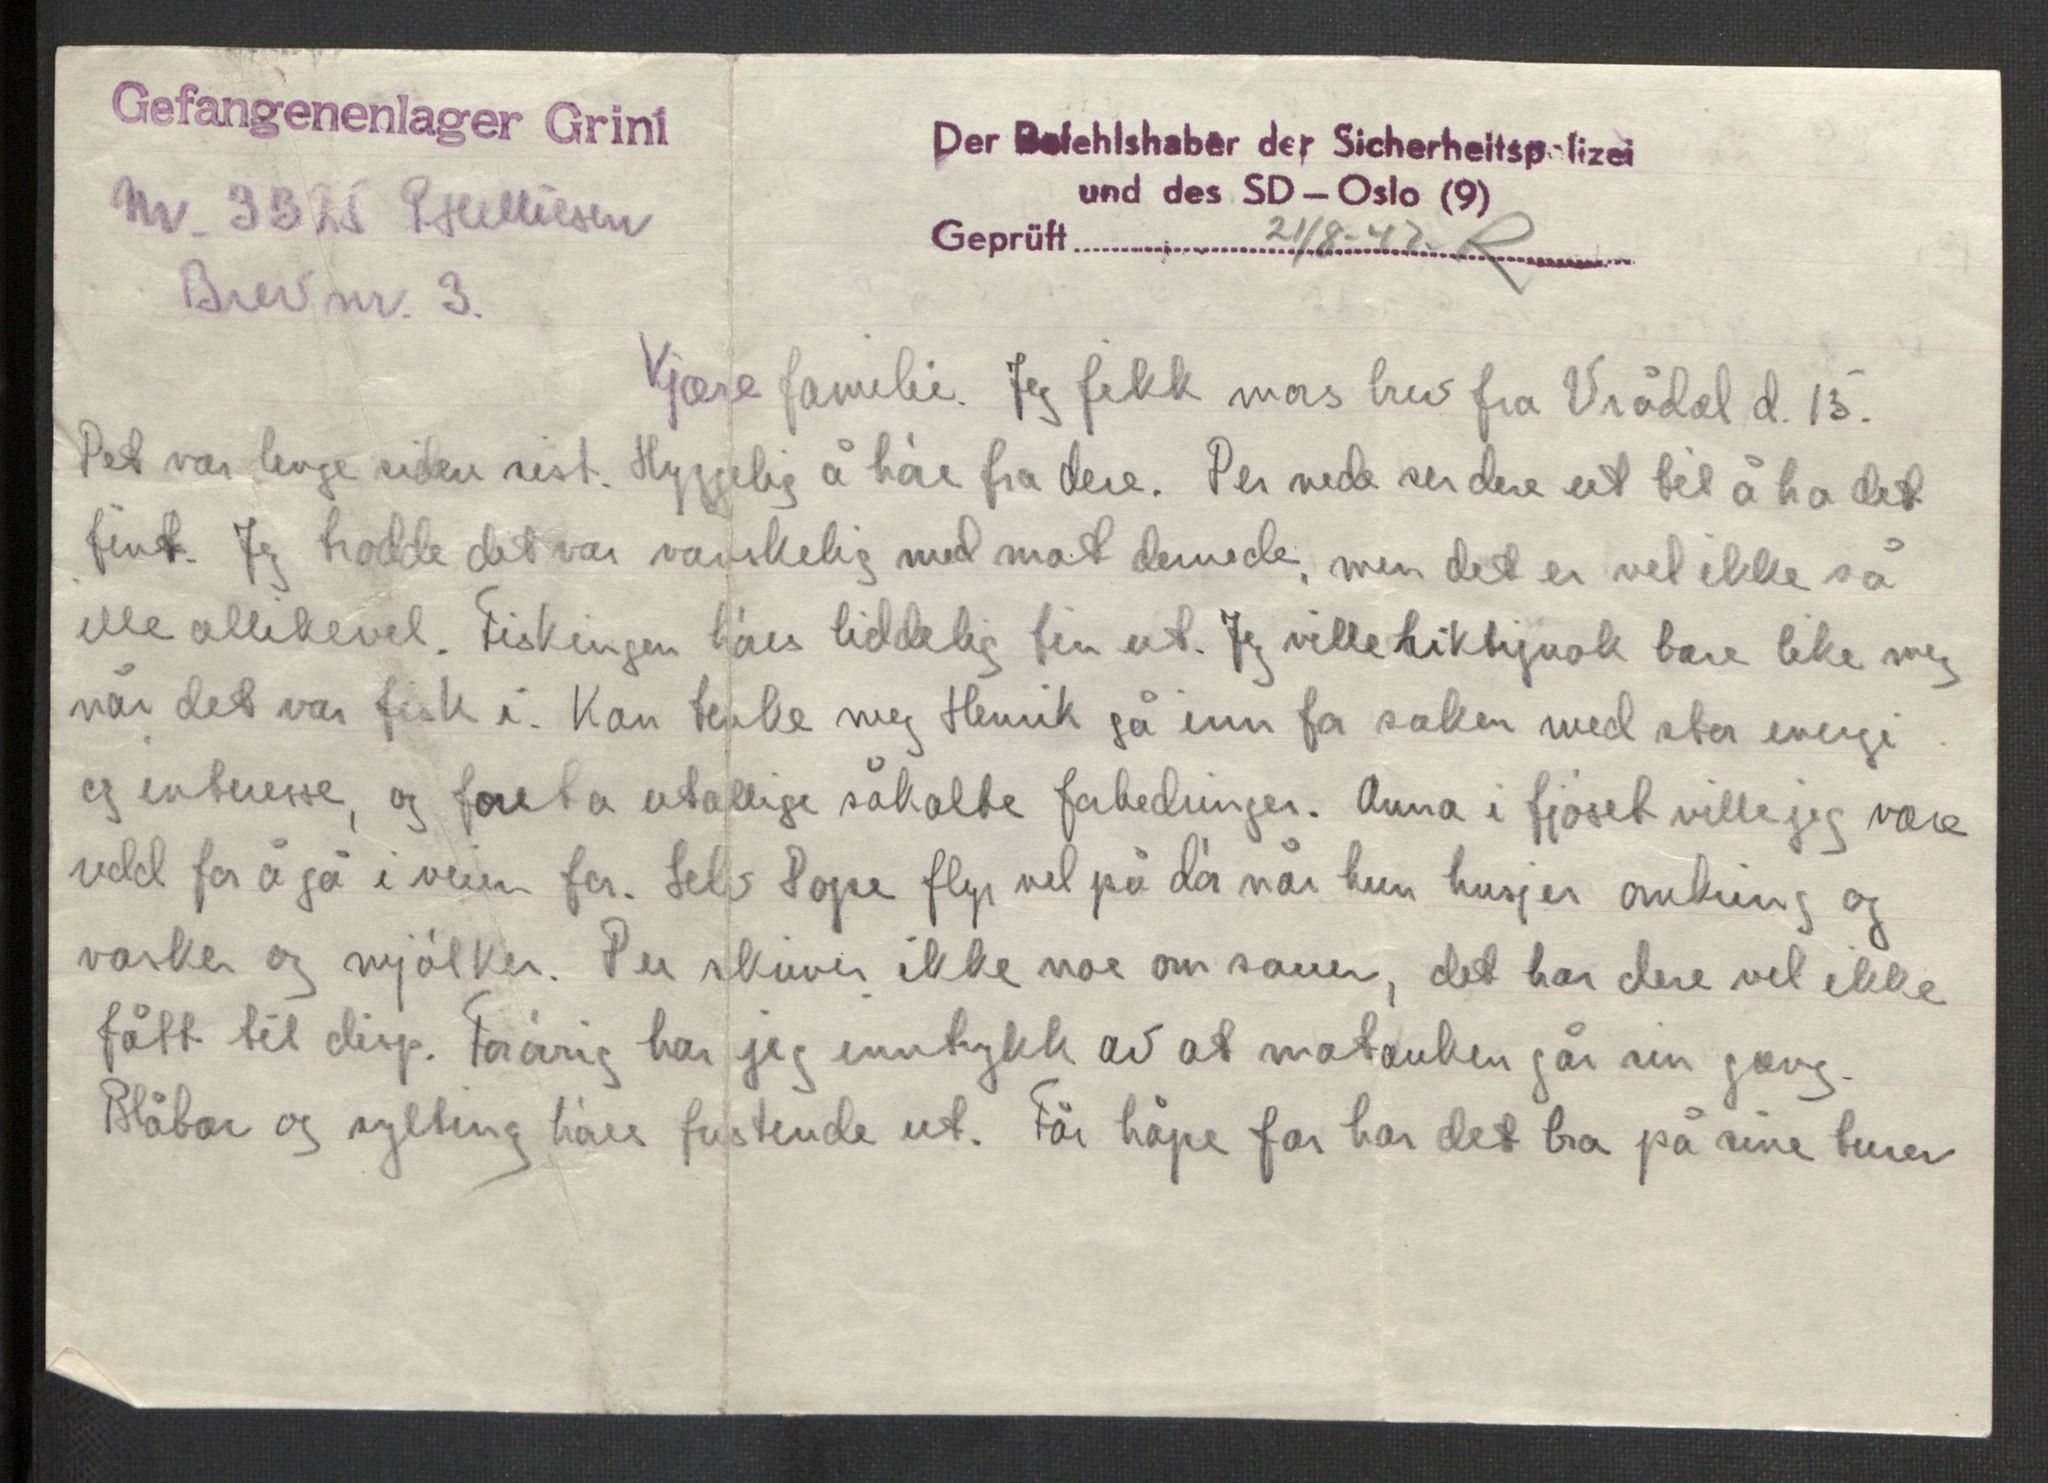 Gefangenenlager Grini
Der Befehlshaber der Sicherheitspolizei
und des SD – Oslo (9)
Geprüft 21/8-42. R
Nr. 3325
Brev nr. 3.
Kjære familie. Jeg fikk mors brev fra Vrådal d. 15.
Det var lenge siden sist. Hyggelig å høre fra dere. Der nede ser dere ut til å ha det
fint. Jeg trodde det var vanskelig med mat dernede, men det er vel ikke så
ille allikevel. Fiskingen høres liddelig fin ut. Jeg ville riktignok bare like meg
når det var fisk i. Kan tenke meg Henrik gå inn for saken med stor energi
og interesse, og foreta utallige såkalte forbedringer. Anna i fjøset ville jeg være
redd for å gå i veien for. Selv flyr vel på dør når hun husjer omkring og
vasker og mjølker. Der skriver ikke noe om sauer, det har dere vel ikke
fått til disp. Forøvrig har jeg inntrykk av at matauken går sin gang.
Blåbær og sylting høres fristende ut. Får håpe far har det bra på sine turer